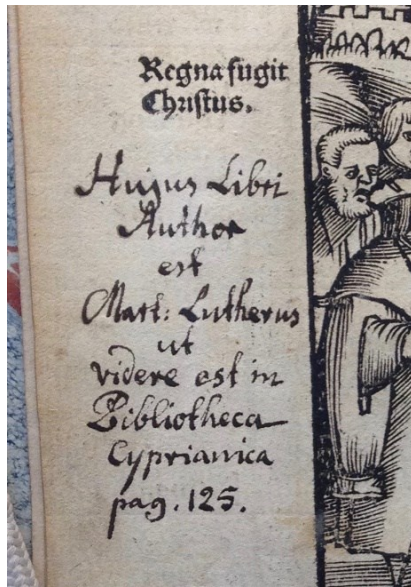 Regna fugit
Christus.
Hujus Libri
Author
est
Mart: Lutherus
ut
videre est in
Bibliotheca
Cyprianica
pag. 125.